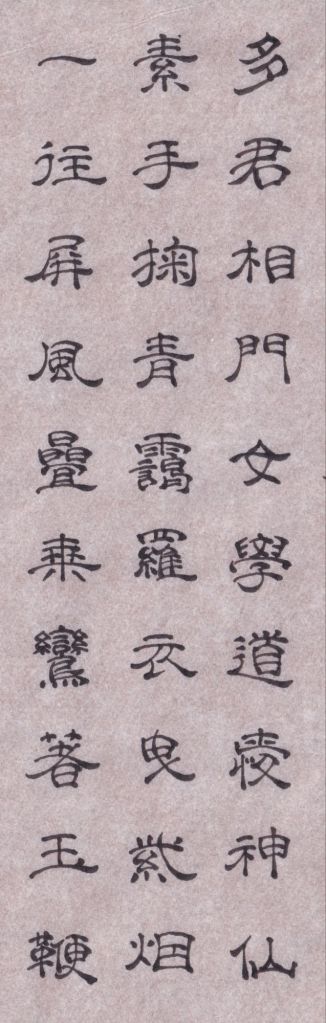 多君相門女學道愛神仙
素手掬青靄羅衣曳紫烟
一往屏風疊乗鸞著玉鞭